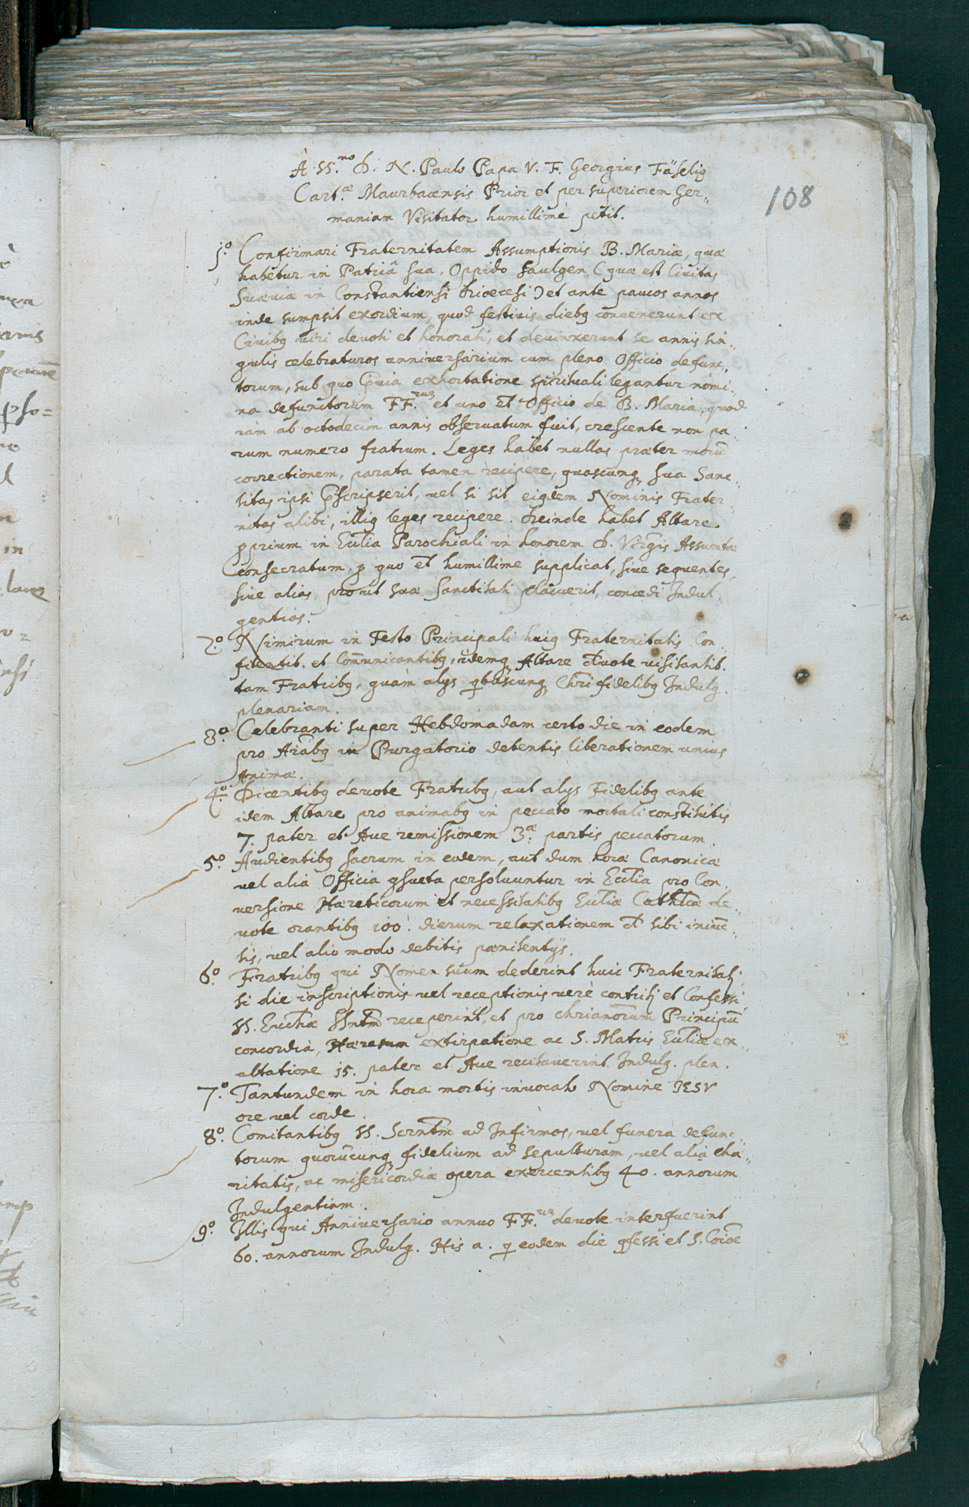 A SS.mo D. N. Paulo Papa V. F. Georgius Fäselig
Cart.æ Maurbacensis Prior et per superiorem Ger-
maniam Visitator humillimè petit.
108
1º Confirmari Fraternitatem Assumptionis B. Mariæ, quæ
habetur in Patriâ sua. Oppido Saulgen (quæ est Civitas
Sueviæ in Constantiensi Dioecesi) et ante paucos annos
inde sumpsit exordium, quod festivis diebg convenerunt ex
Civibg viri devoti et honorati, et devinxerunt se annis sin-
gulis celebraturos anniversarium cum pleno Officio defunc,
torum, sub quo exhortatione spirituali legantur nomi-
na defunctorum FF.rum et uno et Officio de B. Maria, quod
iam ab octodecim annis observatum fuit, crescente non pa-
rum numero fratrum. Leges habet nullas præter morum
correctionem, parata tamen recipere, quascunq sua Sanc-
titas ipsi præscripserit, vel si sit eiusdem Nominis Frater-
nitas alibi, illig leges recipere. Deinde habet Altare
pprium in Ecclia Parochiali in honorem D. Virginis Assumtæ
Consecratum, p quo et humillime supplicat, sive sequentes,
sive alias, prout suæ Sanctitati placuerit, concedi Indul-
gentias.
2º. Nimirum in Festo Principali huig Fraternitatis Con-
fitentib. et Communicantibg, idemq Altare devote visitantib.
tam Fratribg, quam alys quibuscunq Chri fidelibg Indulg.
plenariam.
3º. Celebranti super Hebdomadam certo die in eodem
pro Aiabg in Purgatorio detentis liberationem unius
Animæ.
4º. Dicentibg devote Fratribg, aut alys Fidelibg ante
idem Altare pro animabg in peccato mortali constitutis
7. pater et Ave remissionem 3.æ partis peccatorum.
5º. Audientibg sacrum in eodem, aut dum horæ Canonicæ
vel alia Officia gsueta persolvuntur in Ecclia pro Con-
versione Hæreticorum et necessitatibg Eccliæ Cathcæ de-
vote orantibg 100. dierum relaxationem de sibi iniunc-
tis, vel alio modo debitis poenitentÿs.
6º. Fratribg qui Nomen suum dederint huic Fraternitati,
si die inscriptionis vel receptionis verè contriti et Confessi
SS. Euchæ Sntm receperint, et pro chrianorum Principum
concordia, Hæresum extirpatione ac S. Matris Eccliæ ex-
altatione 15. pater et Ave recitaverint Indulg. plen.
7.º Tantundem in hora mortis invocato Nomine IESV
ore vel corde.
8º. Comitantibg SS. Scrntm ad Infirmos, vel funera defunc-
torum quorumcunq fidelium ad sepulturam, vel alia cha-
ritatis, ac misericordiæ opera exercentibg 40. annorum
Indulgentiam.
9º. Illis qui Anniversario annuo FF.rum devote interfuerint
60. annorum Indulg. His a. q eodem die gfessi et S. Coïoe